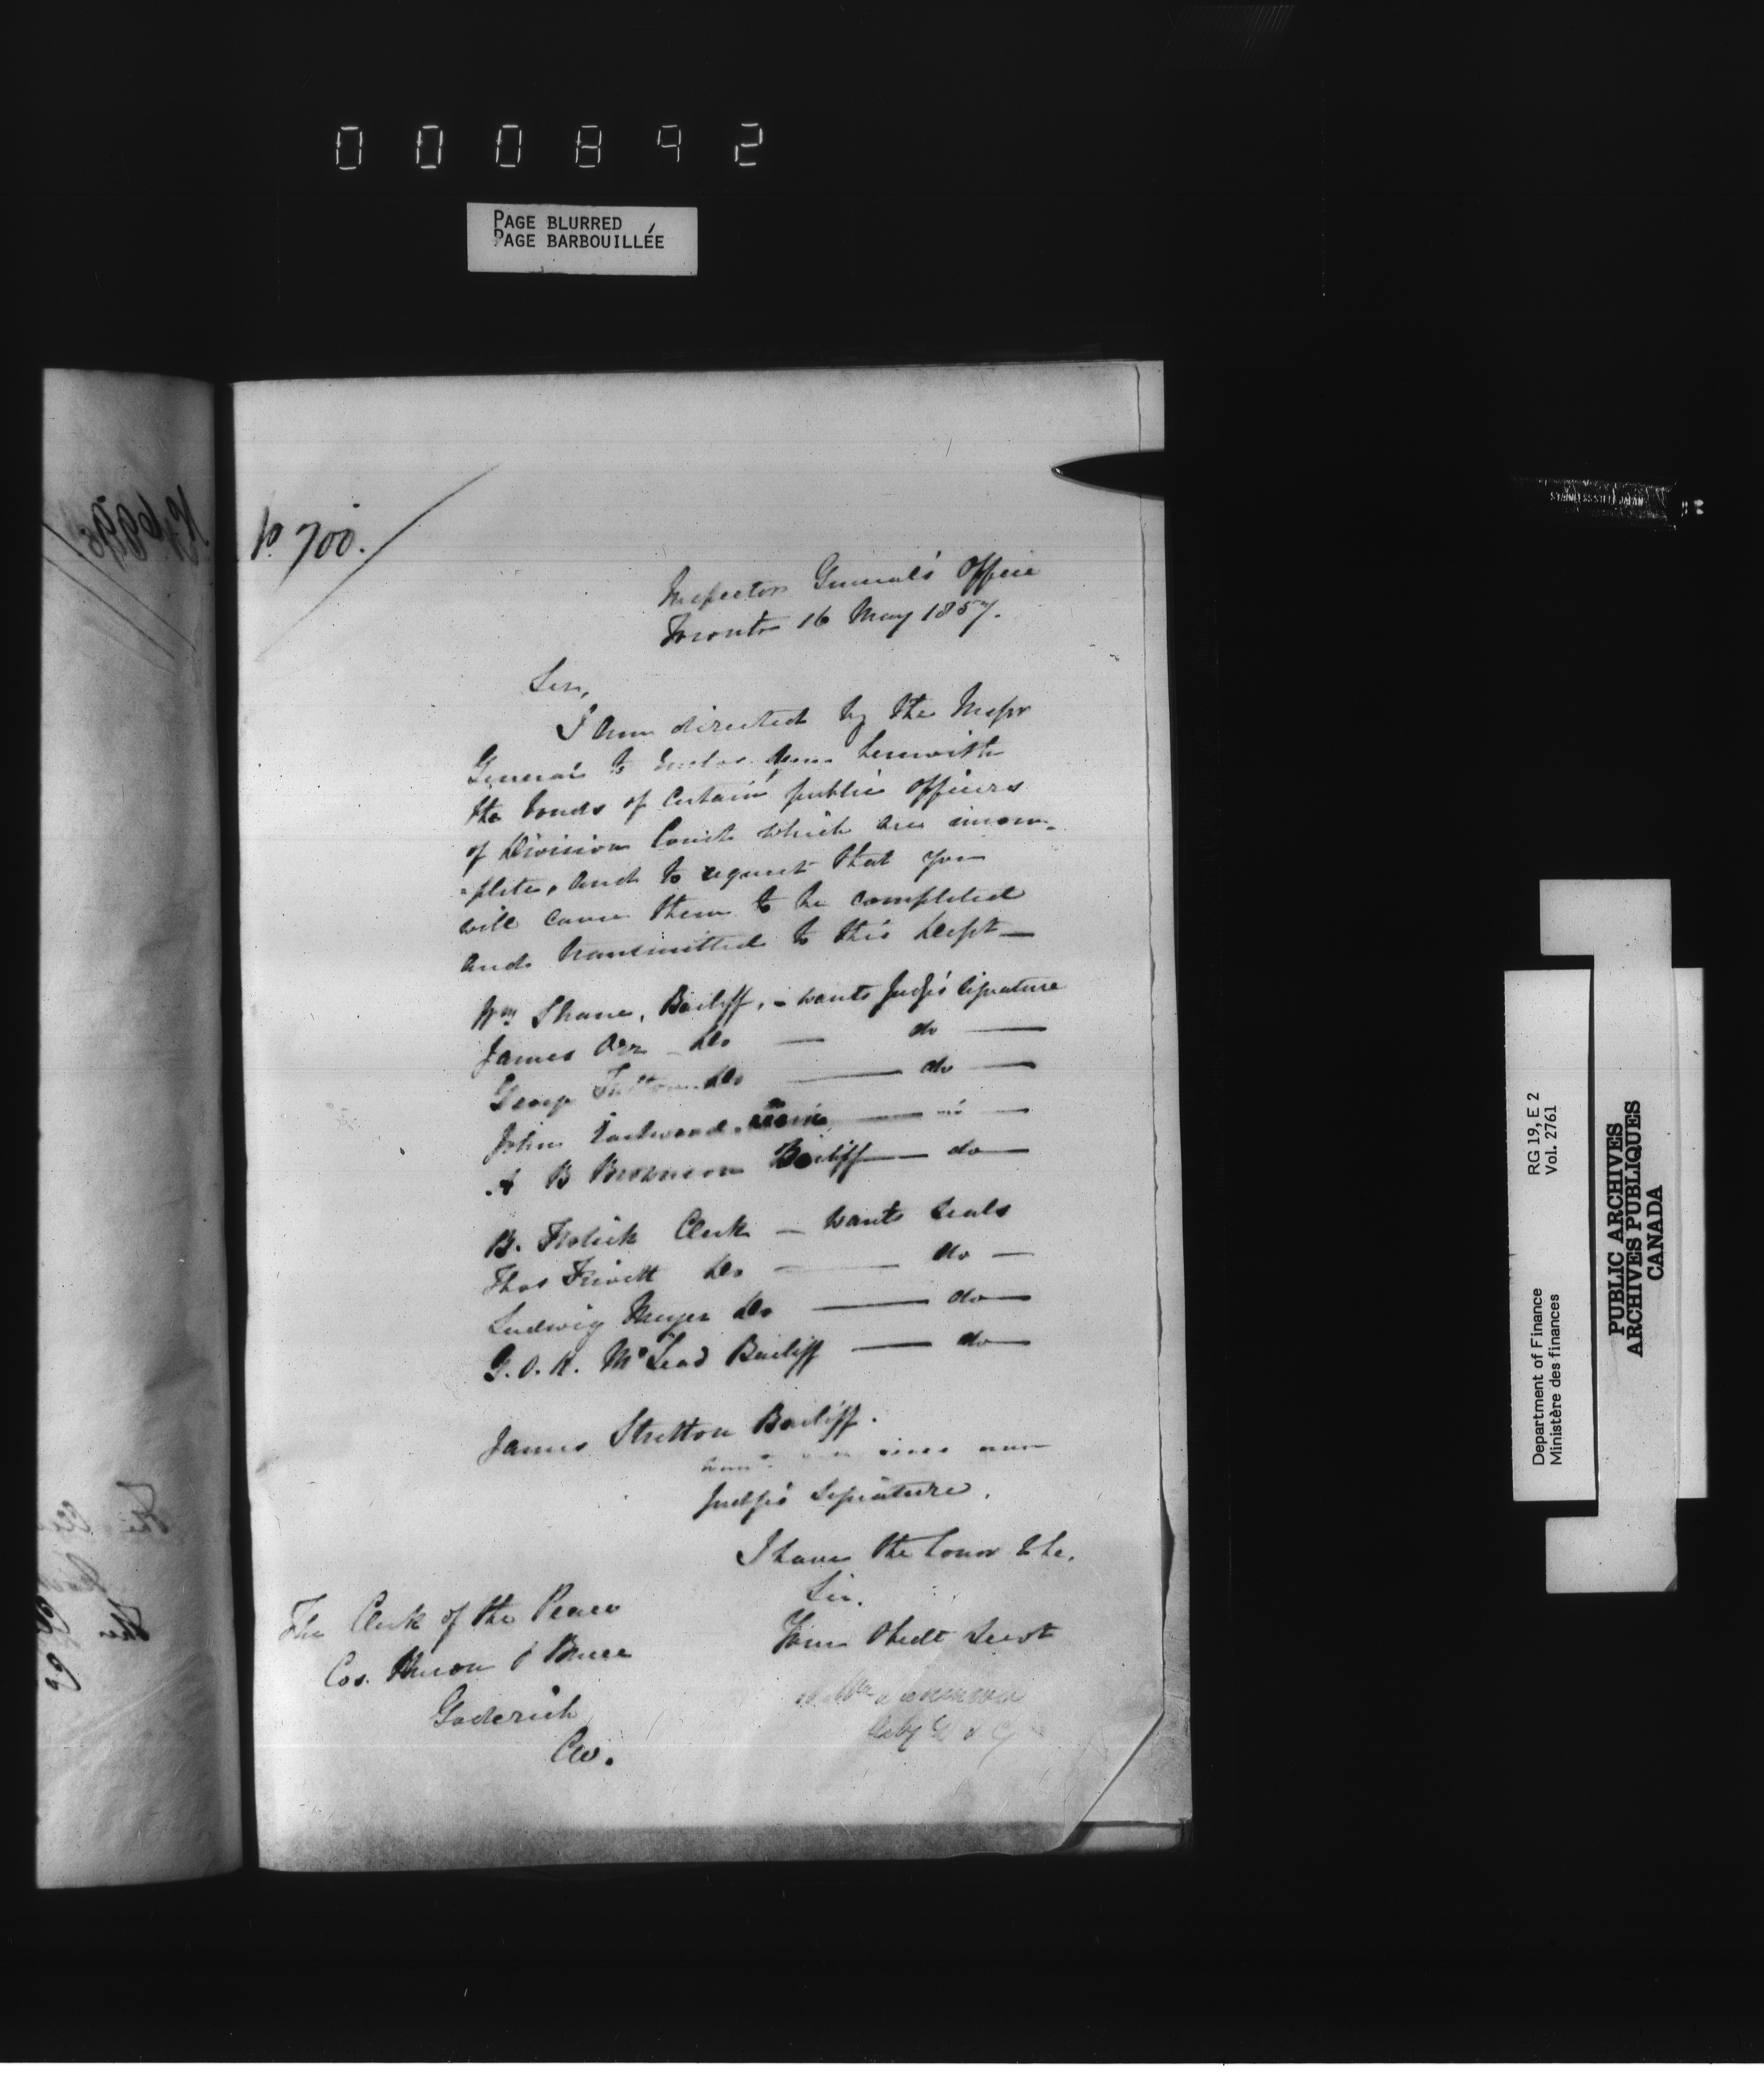 000892
PAGE BLURRED
PAGE BARBOUILLÉE
No. 700.
Inspector General's Office
Toronto 16 May 1857.
Sir,
I am directed by the Inspr
General to Enclose you herewith
the bonds of Certain public Officers
of Division Court which are incom-
-plete, and to request that you
will cause them to be completed
and transmitted to this Dept —
Wm Shane, Bailiff, - wants Judge's Signature
James Orr - Do — do —
George Do — do —
John —
A B Bailiff — do —
B. Clerk — wants Seals
Thos Trivitt Do — do —
Ludwig Meyer Do — do —
G. O. H. McLead Bailiff — do —
James Stretton Bailiff.
Judge's Signature.
I have the honor to be,
Sir,
Your Obedt Servt
The Clerk of the Peace
Cos. Huron & Bruce
Goderich
CW.
RG 19, E 2
Vol. 2761
Department of Finance
Ministère des finances
PUBLIC ARCHIVES
ARCHIVES PUBLIQUES
CANADA